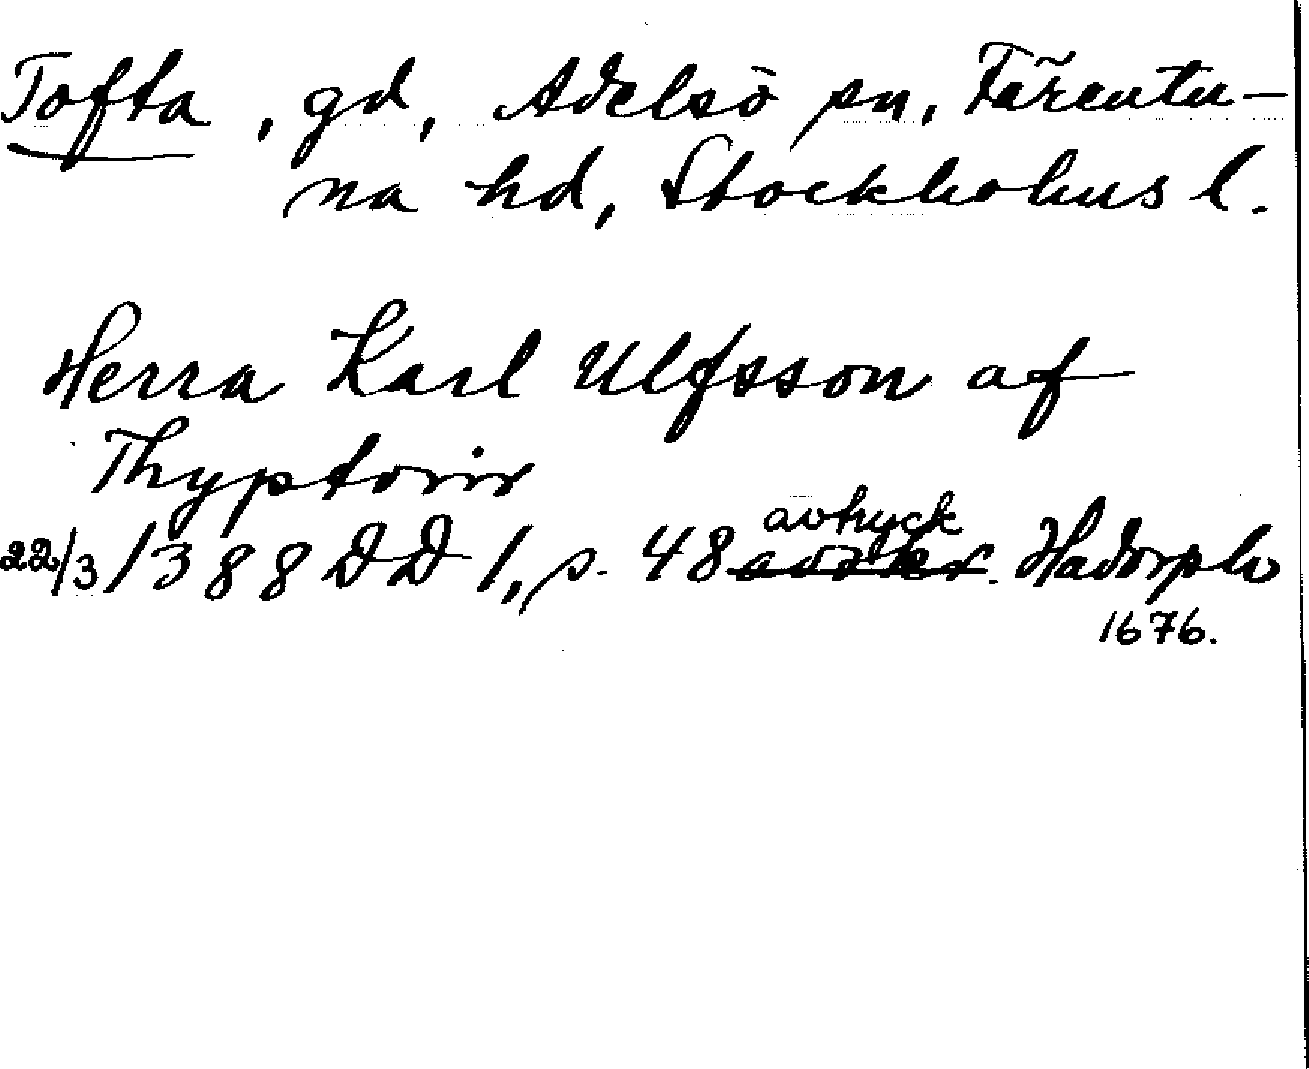 Tofta, gd, Adelsö sn, Färentu-
na hd, Stockholms l.
Herra Karl Ulfsson af
Thyptorir
22/3 1388 DD 1, s. 48 avtryck Hadorph
1676.